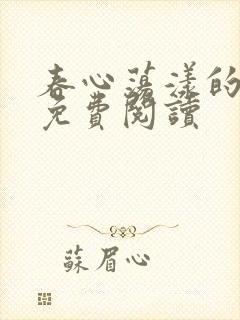 春心蕩漾的
免費閱讀
蘇眉心